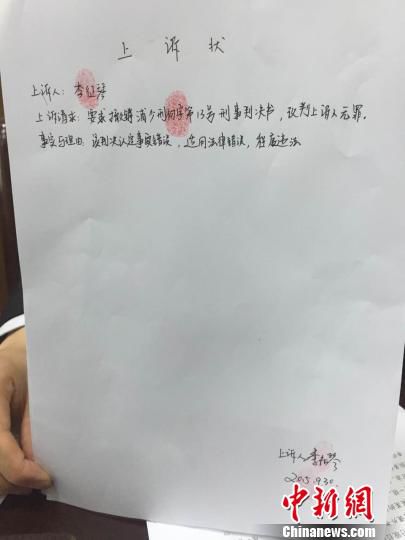 上诉状
上诉人：李征琴
上诉请求：要求撤销浦少刑初字第13号刑事判决书，改判上诉人无罪。
事实与理由：该判决认定事实错误，适用法律错误，程序违法
上诉人 李征琴
2015.9.30.
中新网
Chinanews.com